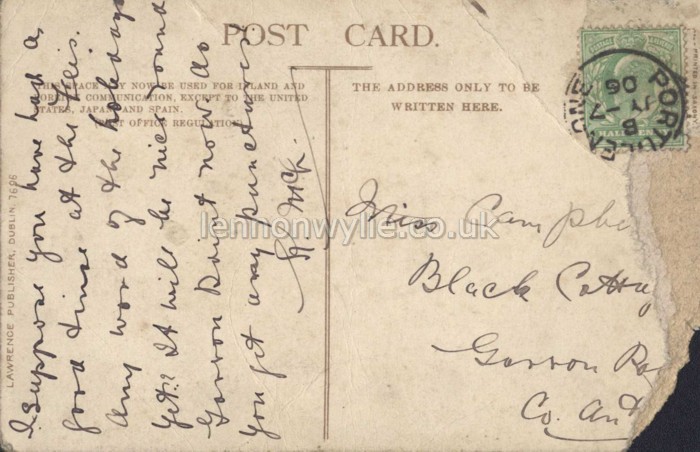 POST CARD.
THIS SPACE MAY NOW BE USED FOR INLAND AND
FOREIGN COMMUNICATION, EXCEPT TO THE UNITED
STATES, JAPAN AND SPAIN.
POST OFFICE REGULATION.
THE ADDRESS ONLY TO BE
WRITTEN HERE.
I suppose you have had a
good time at the
any word of the holidays
yet? It will be nice round
Garron Point now do
you get any punctures
McK.
Miss Campbe
Black Cottag
Garron Po
Co. Ant
LAWRENCE PUBLISHER, DUBLIN, 7696
PORTGLENONE
JY 7
06
HALFPENNY
lennonwylie.co.uk